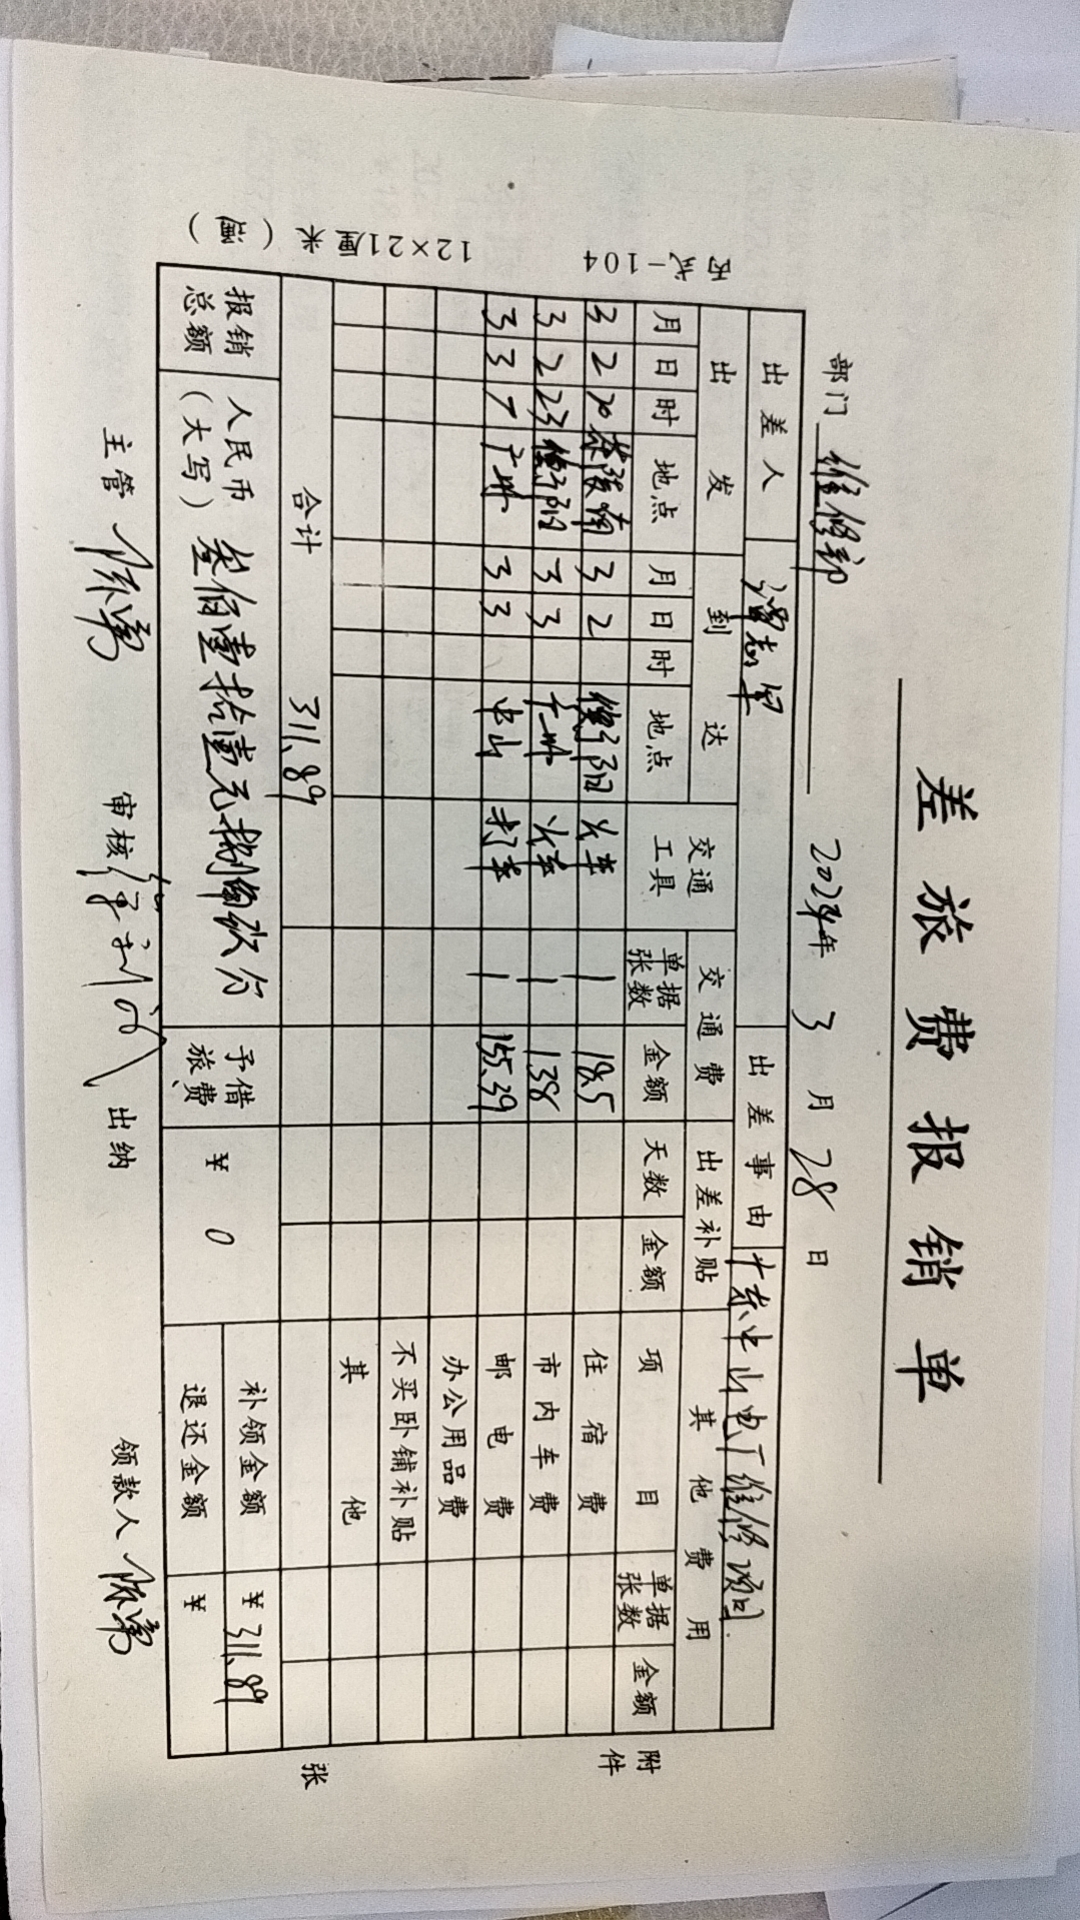 差旅费报销单
2024年 3 月 28 日
部门 维修部
出差人 出差事由 广东中山电厂维修项目
出发 到达 交通工具 交通费 出差补贴 其他费用
月 日 时 地点 月 日 时 地点 单据张数 金额 天数 金额 项目 单据张数 金额
3 2 20 茶陵南 3 2 衡阳 火车 1 18.5 住宿费
3 2 23 衡阳 3 3 广州 火车 1 138 市内车费
3 3 7 广州 3 3 中山 打车 1 155.39 邮电费
办公用品费
不买卧铺补贴
其他
合计 311.89
报销总额 人民币（大写） 叁佰壹拾壹元捌角玖分 予借旅费 ¥ 0 补领金额 ¥311.89
退还金额 ¥
主管 审核 出纳 领款人
附件 张
丙式-104 12×21厘米（薄）